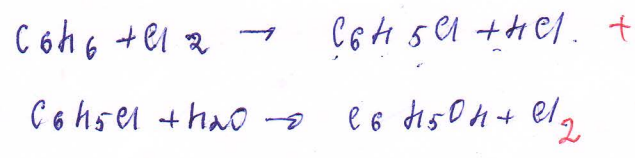 C6H6 + Cl2 → C6H5Cl + HCl. +
C6H5Cl + H2O → C6H5OH + Cl2